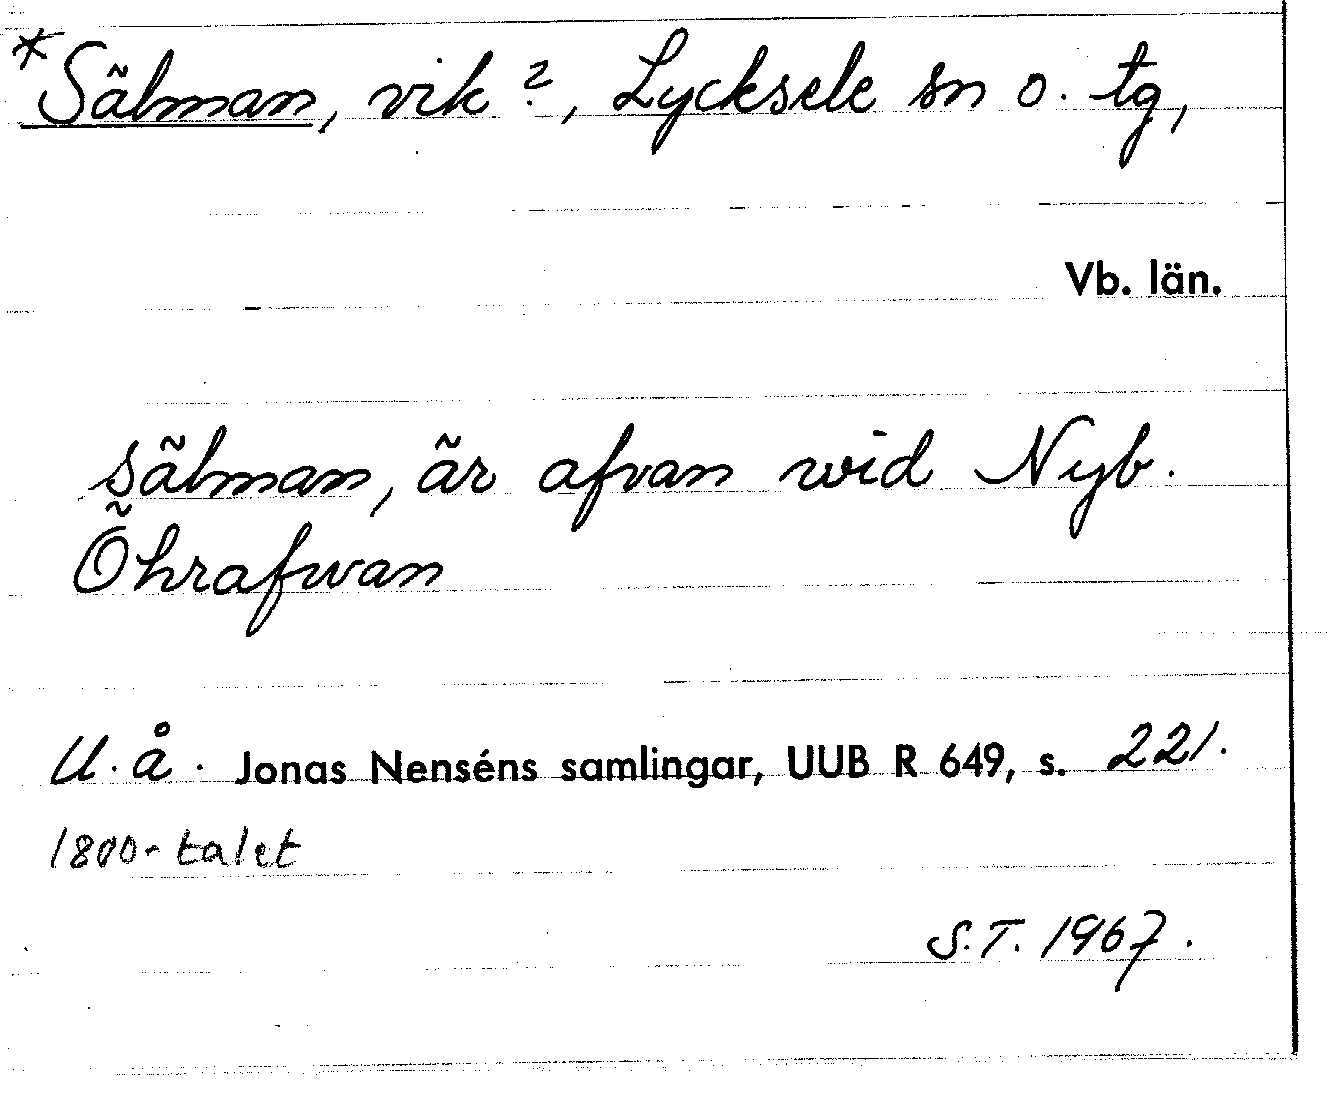 *Sälman, vik?, Lycksele sn o. tg,
Vb. län.
sälman, är afvan wid Nyb.
Öhrafwan
U.å. Jonas Nenséns samlingar, UUB R 649, s. 221.
1800-talet
S.T. 1967.